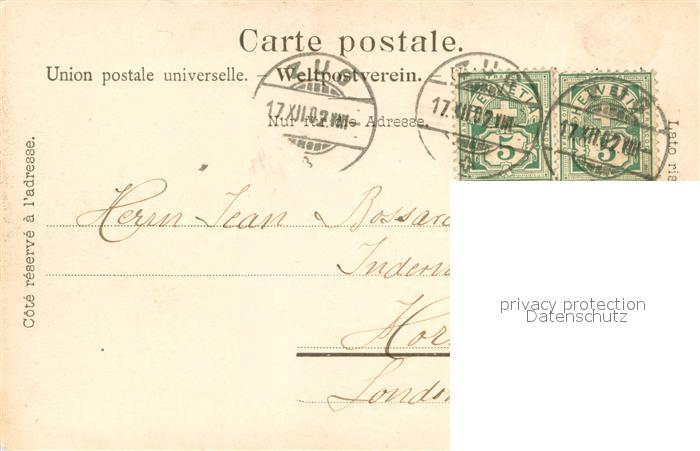 Carte postale.
Union postale universelle. – Weltpostverein. –
Nur für die Adresse.
Côté réservé à l'adresse.
Lato ris
ZUG
17.XII.02.VIII
ZUG
17.XII.02.VIII
17.XII.02.VIII
HELVETIA
5
HELVETIA
5
Herrn Jean Bossard
Hor
London
privacy protection
Datenschutz